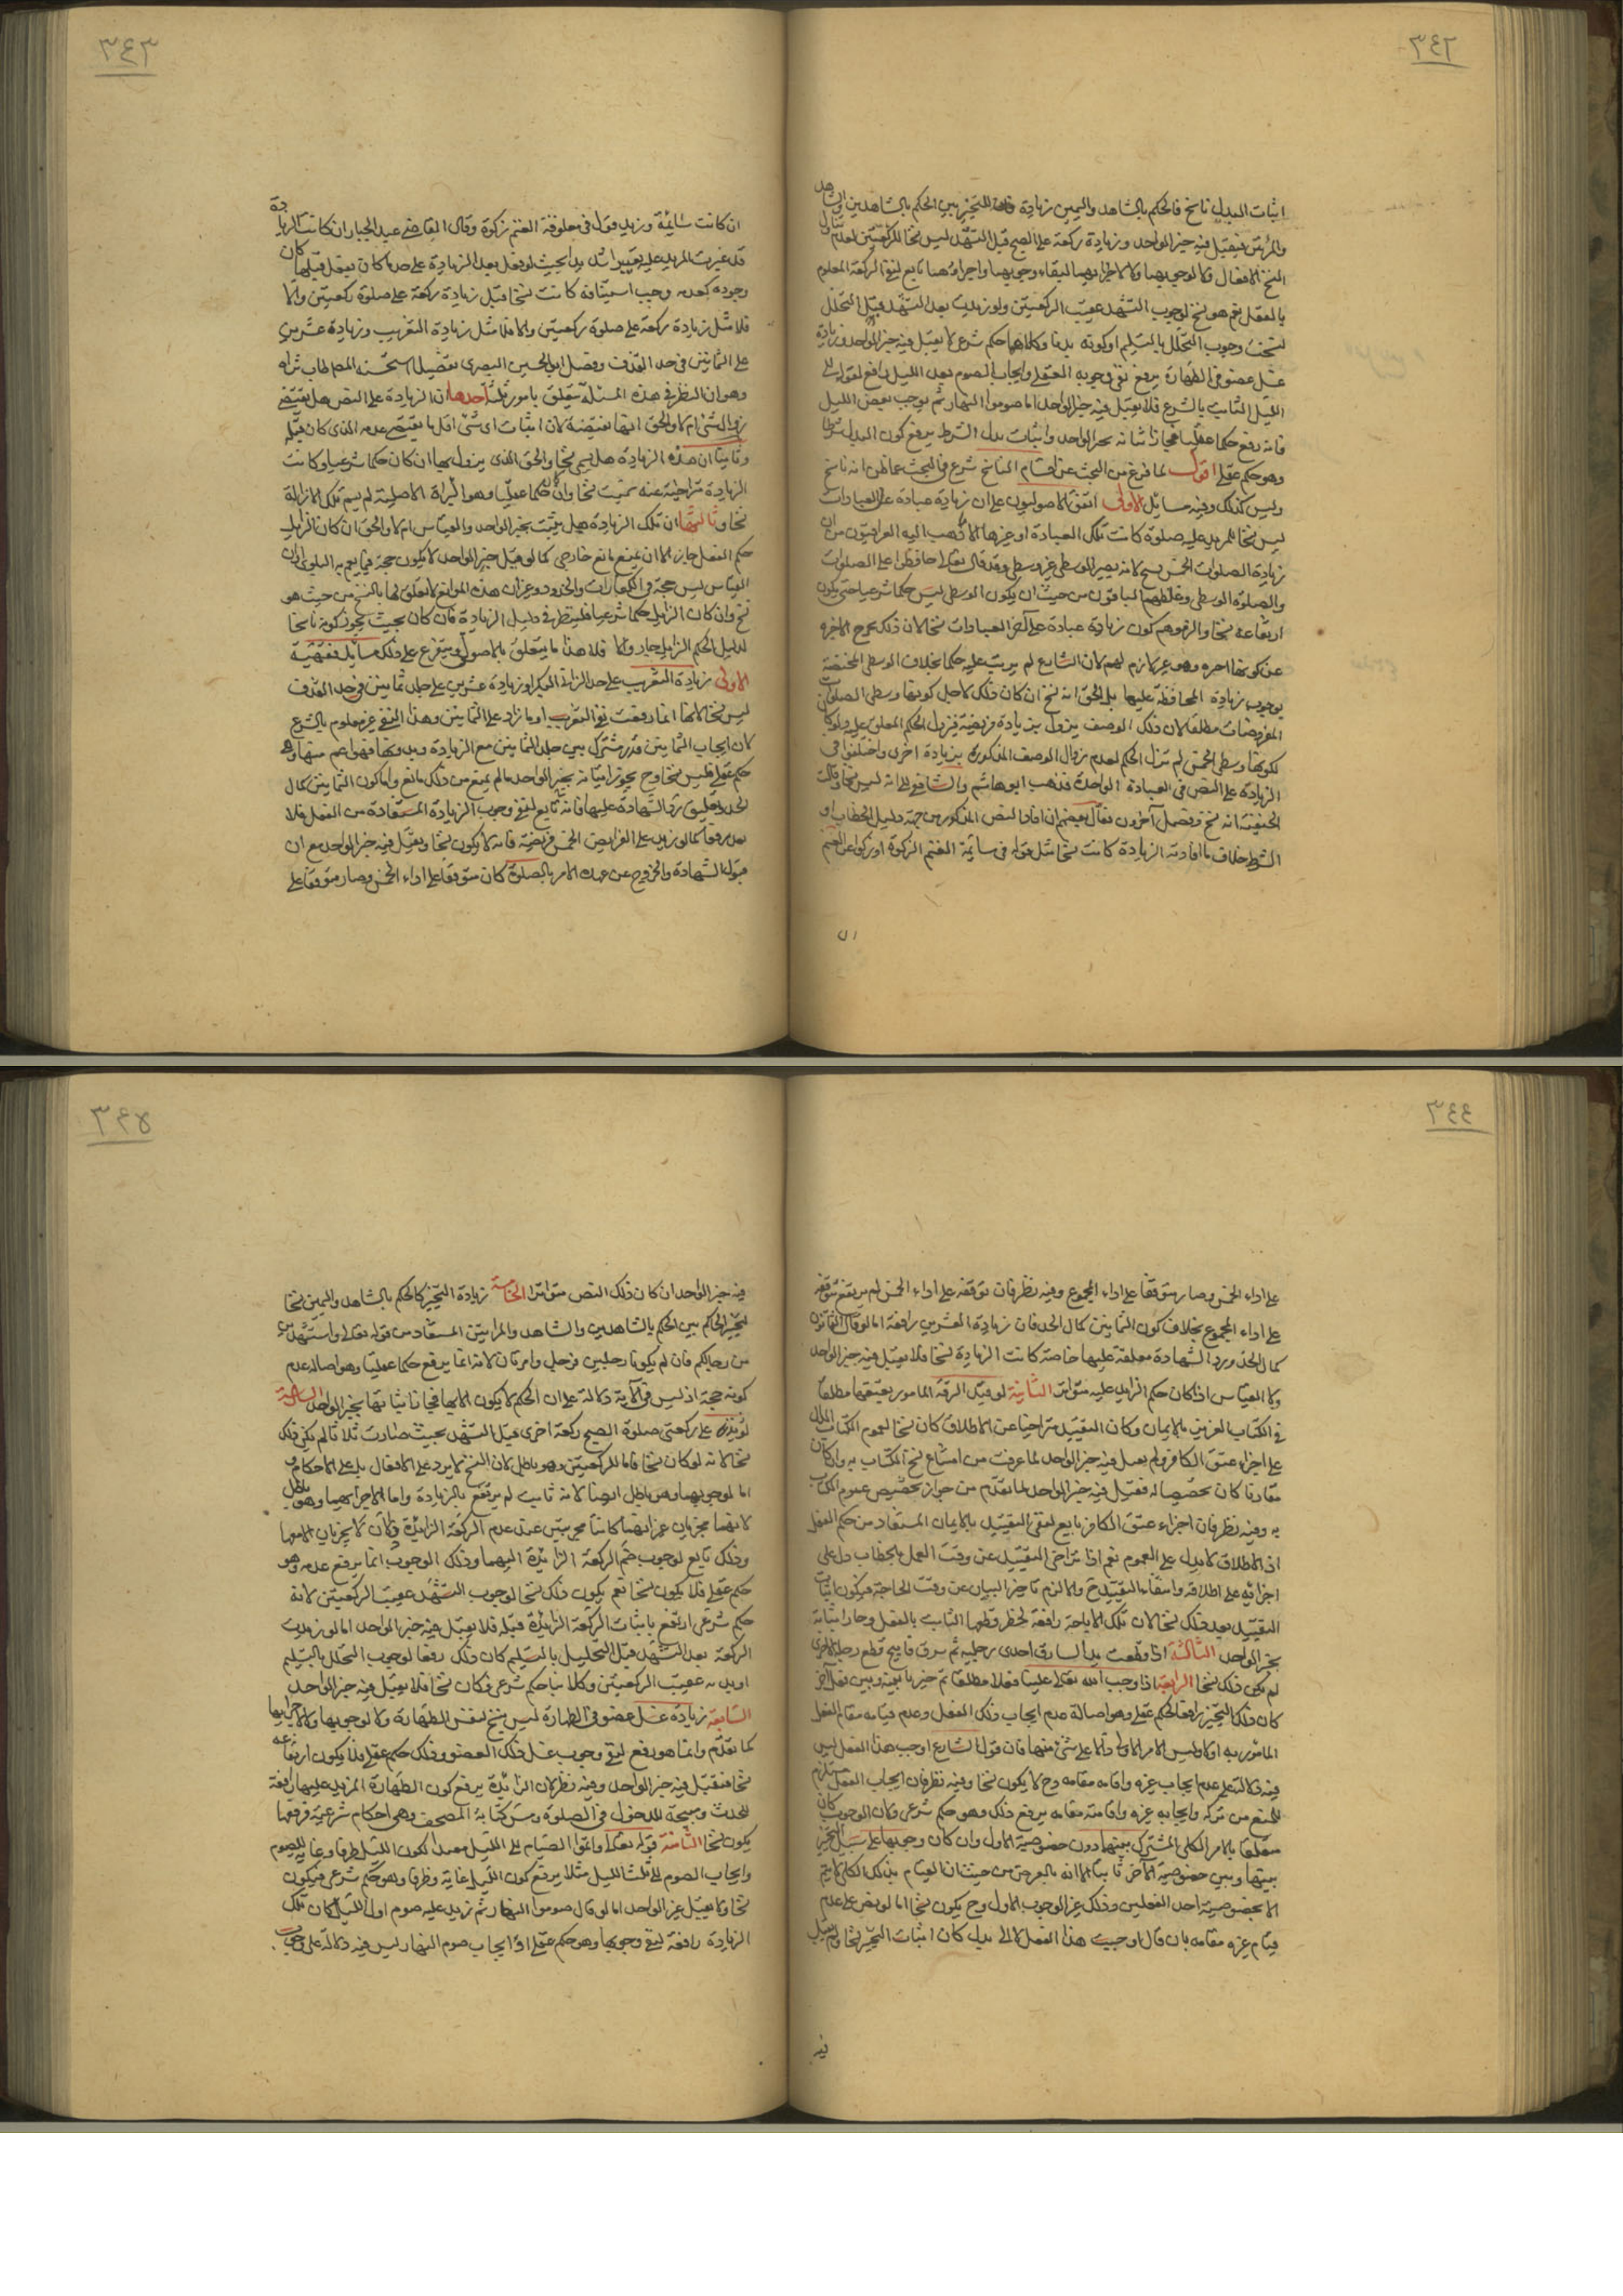 ٣٤٢
اثبات البدل ناسخ فالحكم بالشاهد واليمين زيادة للتخيير بين الحكم بالشاهدين والشاهد
والمرئتين فيقبل فيه خبر الواحد وزيادة ركعة على الصبح قبل التشهد ليس نسخا للركعتين لعدم تناول
النسخ الافعال ولا لوجوبهما ولا لاجزائهما لبقاء وجوبهما واجزاؤهما تابع لنفى الركعة المعلوم
بالعقل نعم هو نسخ لوجوب التشهد عقيب الركعتين ولو زيدت بعد التشهد قبل التحلل
لنسخت وجوب التحلل بالتسليم او كونه ندبا وكلاهما حكم شرعى لا يقبل فيه خبر الواحد وزيادة
غسل عضو فى الطهارة يرفع نفى وجوبه العقلى وايجاب الصوم بعد الليل رافع لقوله الى
الليل الثابت بالشرع فلا يقبل فيه خبر الواحد اما صوموا النهار ثم يوجب بعض الليل
فانه رفع حكما عقليا فجاز اثباته بخبر الواحد واثبات بدل الشرط يرفع كون المبدل شرطا
وهو حكم عقلى اقول لما فرغ من البحث عن اقسام الناسخ شرع فى البحث عما ظن انه ناسخ
وليس كذلك وفيه مسائل الاولى اتفق الاصوليون على ان زيادة عبادة على العبادات
ليس نسخا للمزيد عليه صلوة كانت تلك العبادة او غيرها الا ما ذهب اليه العراقيون من ان
زيادة الصلوات الخمس نسخ لانه يصير الوسطى غير وسطى وقد قال تعالى حافظوا على الصلوات
والصلوة الوسطى وغلطهم الباقون من حيث ان يكون الوسطى ليس حكما شرعيا حتى يكون
ارتفاعه نسخا والزموهم كون زيادة عبادة على آخر العبادات نسخا لان ذلك يخرج الاخيرة
عن كونها اخيرة وهو غير لازم لهم لان الشارع لم يرتب عليه حكما بخلاف الوسطى المختصة
بوجوب زيادة المحافظة عليها بل الحق انه نسخ ان كان ذلك لاجل كونها وسطى الصلوات
المفروضات مطلقا لان ذلك الوصف يزول بزيادة فريضة فيزول الحكم المعلق عليه ولو كان
لكونها وسطى الخمس لم تزل الحكم لعدم زوال الوصف المذكورة بزيادة اخرى واختلفوا فى
الزيادة على النص فى العبادة الواحدة فذهب ابو هاشم والشافعى الى انه ليس نسخا وقالت
الحنفية انه نسخ وفصل آخرون فقال بعضهم ان افاد النص المذكور من جهة دليل الخطاب او
الشرط خلاف ما افادته الزيادة كانت نسخا مثل قوله فى سائمة الغنم الزكوة او زكوا عن الغنم
ان
٣٤٣
ان كانت سائمة وزيد قول فى معلوفة الغنم زكوة وقال القاضى عبد الجبار ان كانت الزيادة
قد غيرت المزيد عليه تغييرا شديدا بحيث لو فعل بعد الزيادة على حد ما كان يفعل قبلها كان
وجوده كعدمه وجب استينافه كانت نسخا مثل زيادة ركعة على صلوة ركعتين والا
فلا مثل زيادة ركعة على صلوة ركعتين والا فلا مثل زيادة التغريب وزيادة عشرين
على الثمانين فى حد القذف وفصل ابو الحسين البصرى تفصيلا استحسنه المصـ طاب ثراه
وهو ان النظر فى هذه المسئلة يتعلق بامور ثلثة احدها ان الزيادة على النص هل يقتضى
زوال شئ ام لا والحق انها تقتضيه لان اثبات اى شئ اقل ما يقتضى عدمه الذى كان قبله
وثانيها ان هذه الزيادة هل يسمى نسخا والحق الذى يزول بها ان كان حكما شرعيا وكانت
الزيادة متراخية عنه سميت نسخا وان كان حكما عقليا وهو البراة الاصلية لم يسم تلك الازالة
نسخا وثالثها ان تلك الزيادة هل يثبت بخبر الواحد والقياس ام لا والحق ان كان الزايل
حكم العقل جاز الا ان يمنع مانع خارجى كما لو قيل خبر الواحد لا يكون حجة فيما يعم به البلوى او ان
القياس ليس حجة فى الكفارات والحدود وغير ان هذه الموانع لا تعلق لها بالنسخ من حيث هو
نسخ وان كان الزايل حكما شرعيا فلينظر فى دليل الزيادة فان كان بحيث يجوز كونه ناسخا
لدليل الحكم الزايل جاز والا فلا هذا ما يتعلق بالاصول ويتفرع على ذلك مسائل فقهية
الاولى زيادة التغريب على حد الزانى البكر او زيادة عشرين على جلد ثمانين فى حد القذف
ليس نسخا لانها انما رفعت نفى التغريب او ما زاد على الثمانين وهذا النفى غير معلوم بالشرع
لان ايجاب الثمانين قدر مشترك بين جلد الثمانين مع الزيادة وبدونها فهو اعم منهما وهو
حكم عقلى فليس نسخا وح يجوز اثباته بخبر الواحد ما لم يمنع من ذلك مانع واما كون الثمانين كمال
الحد وتعليق رد الشهادة عليها فانه تابع لنفى وجوب الزيادة المستفادة من العقل فلا
يعد مرفوعا كما لو زيد على الفرايض الخمس فريضة فانه لا يكون نسخا ويقبل فيه خبر الواحد مع ان
قبول الشهادة والخروج عن عهدة الامر بالصلوة كان متوقفا على اداء الخمس وصار متوقفا على
٣٤٤
على اداء الخمس وصار متوقفا على اداء المجموع وفيه نظر فان توقفه على اداء الخمس لم يرتفع بتوقفه
على اداء المجموع بخلاف كون الثمانين كمال الحد فان زيادة العشرين رافعة اما لو قال الثمانون
كمال الحد ورد الشهادة معلقة عليها خاصة كانت الزيادة نسخا فلا يقبل فيه خبر الواحد
ولا القياس اذا كان حكم الزايد عليه متواترا الثانية لو قيد الرقبة المامور بعتقها مطلقا
فى الكتاب العزيز بالايمان وكان التقييد متراخيا عن الاطلاق كان نسخا لعموم الكتاب الدال
على اجزاء عتق الكافر ولم يعمل فيه خبر الواحد لما عرفت من امتناع نسخ الكتاب به وان كان
مقارنا كان تخصيصا له فقبل فيه خبر الواحد لما تقدم من جواز تخصيص عموم الكتاب
به وفيه نظر فان اجزاء عتق الكافر تابع لنفى التقييد بالايمان المستفاد من حكم العقل
اذ الاطلاق لا يدل على العموم نعم اذا تراخى التقييد عن وقت العمل بالخطاب دل على
اجزائه على اطلاقه وانتفاء التقييد ح والا لزم تاخير البيان عن وقت الحاجة فيكون اثبات
التقييد بعد ذلك نسخا لان تلك الاباحة رافعة لحظر قطعها الثابت بالعقل وجاز اثباته
بخبر الواحد الثالثة اذا قطعت يد السارق احدى رجليه ثم سرق فابيح قطع رجله الاخرى
لم يكن ذلك نسخا الرابعة اذا وجب الله تعالى علينا فعلا مطلقا ثم خيرنا بينه وبين فعل آخر
كان ذلك التخيير رافعا لحكم عقلى وهو اصالة عدم ايجاب ذلك الفعل وعدم قيامه مقام الفعل
المامور به اولا وليس الامر الاول دالا على شئ منها فان قول الشارع اوجب هذا الفعل ليس
فيه دلالة على عدم ايجاب غيره واقامه مقامه وح لا يكون نسخا وفيه نظر فان ايجاب الفعل مستلزم
للمنع من تركه وايجابه غيره واقامته مقامه يرفع ذلك وهو حكم شرعى وكان الوجوب كان
متعلقا بالامر الكلى المشترك بينهما دون خصوصية الاول وان كان وجوبها على سبيل التخيير
بينها وبين خصوصية الآخر ثابتا الا انه بالعرض من حيث ان القيام بذلك الكلى لا يتم
الا بخصوصية احد الفعلين وذلك غير الوجوب الاول وح يكون نسخا اما لو نص على عدم
قيام غيره مقامه بان قال اوجبت هذا الفعل لا الى بدل كان اثبات التخيير نسخا ولم يقبل
فيه
٣٤٥
فيه خبر الواحد ان كان ذلك النص متواترا الخامسة زيادة التخيير كالحكم بالشاهد واليمين نسخا
لتخيير الحاكم بين الحكم بالشاهدين والشاهد والمراتين المستفاد من قوله تعالى واستشهدوا شهيدين
من رجالكم فان لم يكونا رجلين فرجل وامرتان لانه انما يرفع حكما عقليا وهو اصالة عدم
كونه حجة اذ ليس فى الآية دلالة على ان الحكم لا يكون الا بها فجاز اثباتها بخبر الواحد السادسة
لو زيد على ركعتى صلوة الصبح ركعة اخرى قبل التشهد بحيث صارت ثلاثا لم يكن ذلك
نسخا لانه لو كان نسخا فاما للركعتين وهو باطل لان النسخ لا يرد على الافعال بل على الاحكام و
اما لوجوبهما وهو باطل ايضا لانه ثابت لم يرتفع بالزيادة واما لاجزائهما وهو باطل
لانهما مجزيان غير انهما كانتا مجزيتين عند عدم الركعة الزايدة والآن لا يجزيان الا معها
وذلك تابع لوجوب ضم الركعة الزايدة اليهما وذلك الوجوب انما يرفع عدمه وهو
حكم عقلى فلا يكون نسخا نعم يكون ذلك نسخا لوجوب التشهد عقيب الركعتين لانه
حكم شرعى ارتفع باثبات الركعة الزايدة قبله فلا يقبل فيه خبر الواحد اما لو زيدت
الركعة بعد التشهد قبل التحليل بالتسليم كان ذلك رفعا لوجوب التحلل بالتسليم
او ندبه عقيب الركعتين وكلاهما حكم شرعى فكان نسخا فلا يقبل فيه خبر الواحد
السابعة زيادة غسل عضو فى الطهارة ليس نسخ لنفس الطهارة ولا لوجوبها ولا لاجزايها
كما تقدم وانما هو رفع لنفى وجوب غسل ذلك العضو وذلك حكم عقلى فلا يكون ارتفاعه
نسخا فيقبل فيه خبر الواحد وفيه نظر لان الزايدة يرفع كون الطهارة المزيد عليها رافعة
للحدث ومبيحة للدخول فى الصلوة ومس كتابة المصحف وهى احكام شرعية فرفعها
يكون نسخا الثامنة قوله تعالى واتموا الصيام الى الليل مفيد لكون الليل طرفا وغاية للصوم
وايجاب الصوم الى ثلث الليل مثلا يرفع كون الليل غاية وطرفا وهو حكم شرعى فيكون
نسخا ولا يقبل خبر الواحد اما لو قال صوموا النهار ثم زيد عليه صوم اول الليل كان تلك
الزيادة رافعة لنفى وجوبها وهو حكم عقلى اذ ايجاب صوم النهار ليس فيه دلالة على وجوب